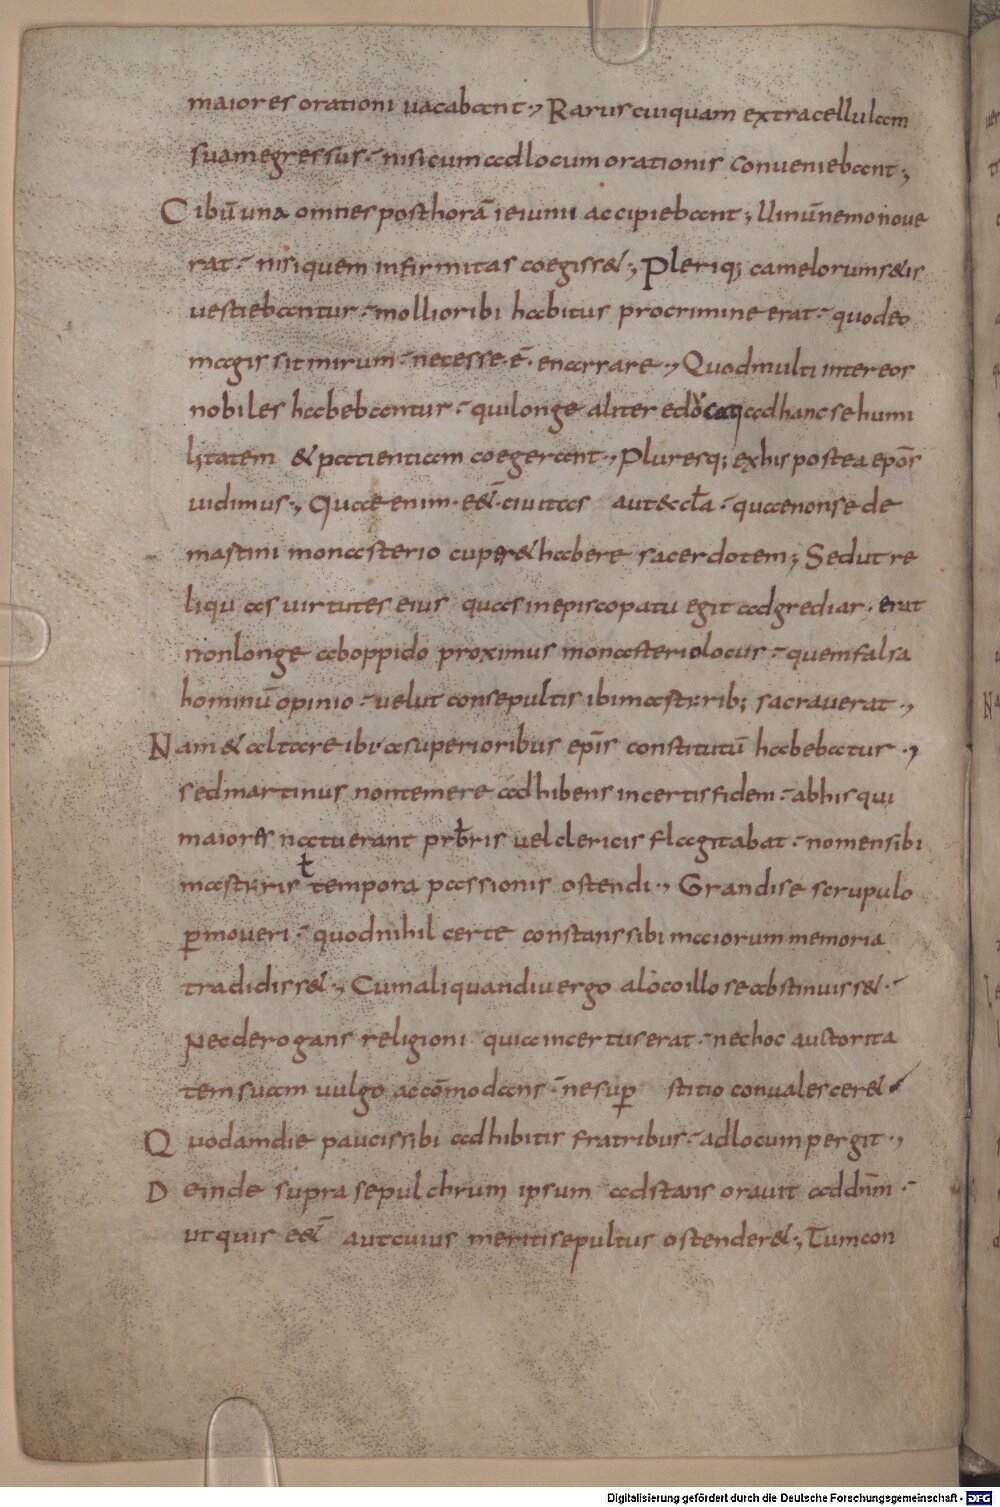 maiores orationi vacabant ·, Rarus cuiquam extra cellulam
suam egressus ·- nisi cum ad locum orationis conveniebant ;
Cibū una omnes post horā ieiunii accipiebant ; Uinū nemo nove
rat ·- nisi quem infirmitas coegiss& ·, Pleriq; camelorum s&is
vestiebantur ·- molliori ibi habitus pro crimine erat ·- quod eo
magis sit mirum ·- necesse · ē · enarrare ·, Quod multi inter eos
nobiles habebantur ·- qui longe aliter ad hanc se humi
litatem & patientiam coegerant ·, Pluresq; ex his postea epōs
vidimus ·, Quae enim · e&̄ · civitas aut &ccła ·- quae non se de
mastini monasterio cuper& habere sacerdotem ; Sed ut re
liquas virtutes eius quas in episcopatu egit adgrediar · erat
non longe ab oppido proximus monasterio locus ·- quem falsa
hominū opinio ·- velut consepultis ibi mastirib; sacraverat ·,
Nam & altare ibi a superioribus epīs constitutū habebatur ·,
sed martinus non temere adhibens incertis fidem ·- ab his qui
maiores natu erant prƀris vel clericis flagitabat ·- nomen sibi
mastiris ł tempora passionis ostendi ·, Grandi se scrupulo
p̄moveri ·- quod nihil certe constans sibi maiorum memoria
tradidiss& ·, Cum aliquandiu ergo a loco illo se abstinuiss& ·-
Nec derogans religioni quia incertus erat ·- nec hoc auctorita
tem suam vulgo accōmodans ·- ne sup̄ stitio convalescer&
Quodam die paucis sibi adhibitis fratribus ·- ad locum pergit ·,
Deinde supra sepulchrum ipsum adstans oravit ad dn̄m ·-
ut quis e&̄ aut cuius meriti sepultus ostender& ·, Tum con
Digitalisierung gefördert durch die Deutsche Forschungsgemeinschaft - DFG